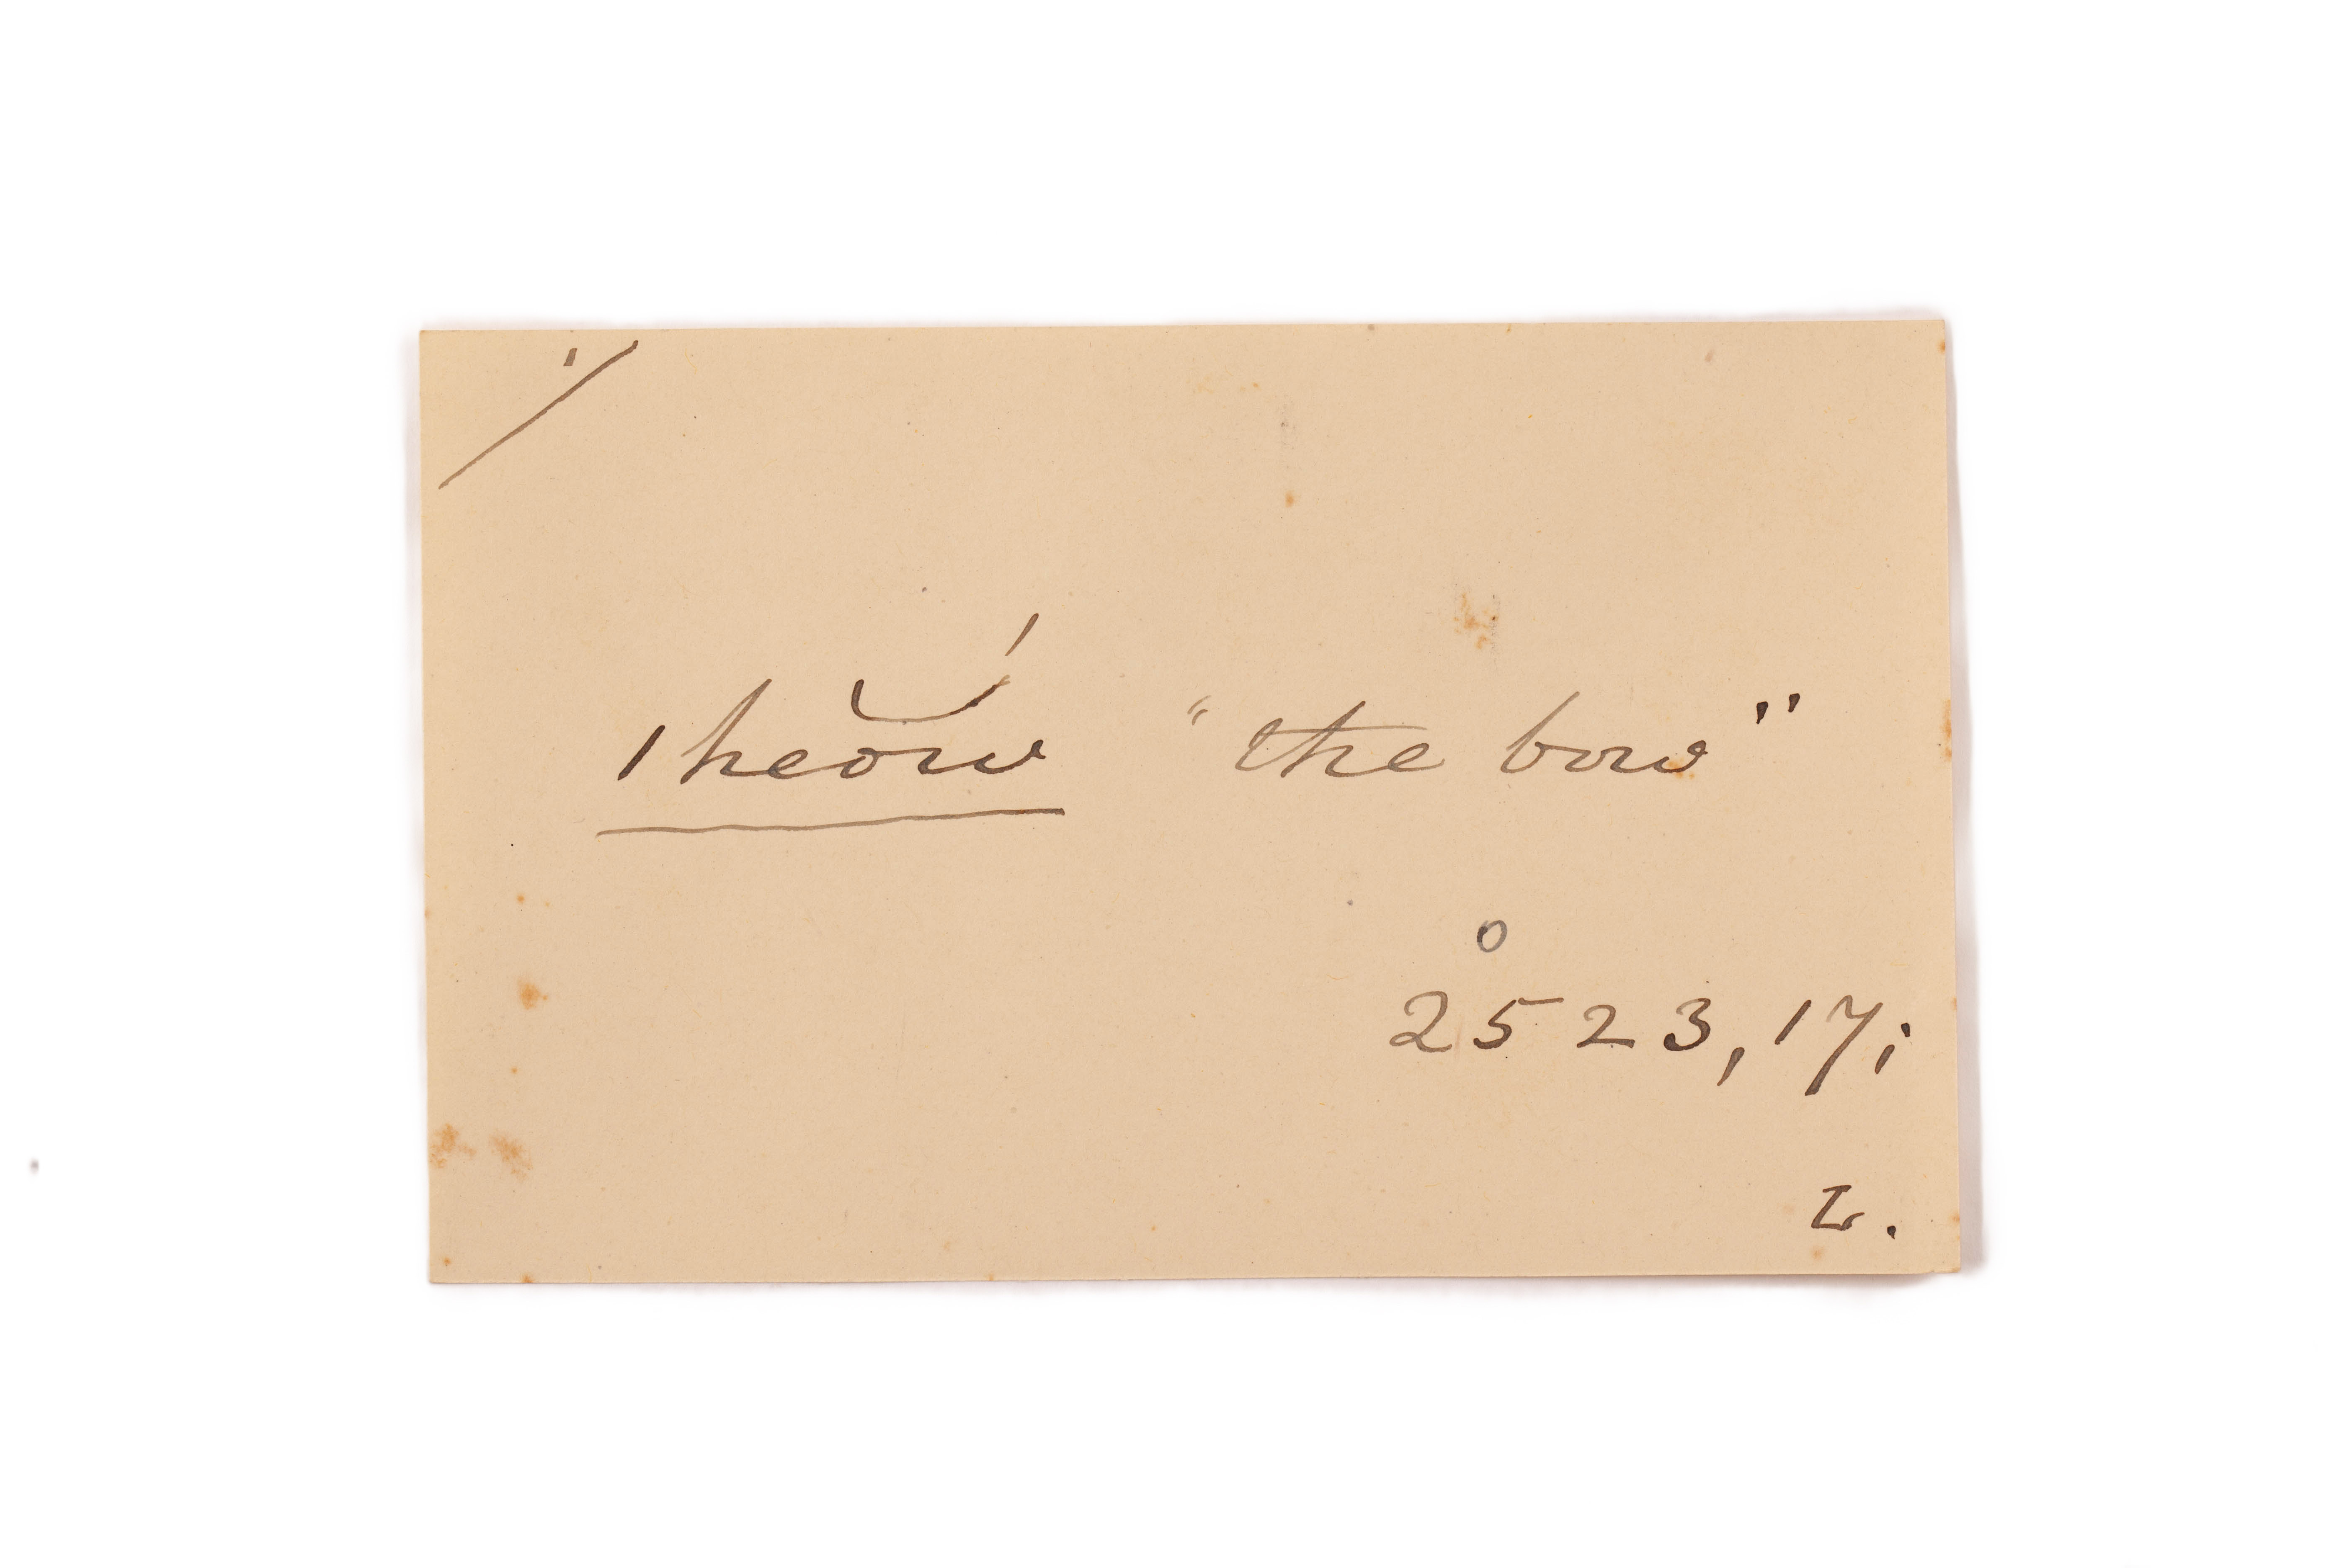 '/
|heŏẃ "the bow"
o
2523, 17;
L.